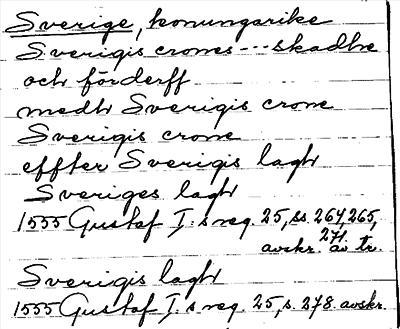 Sverige, konungarike
Sverigis crones --- skadhe
och förderff
medh Sverigis crone
Sverigis crone
effter Sverigis lagh
Sveriges lagh
1555 Gustaf I:s reg. 25, ss. 264, 265,
271. avskr. av tr.
Sverigis lagh
1555 Gustaf I:s reg. 25, s. 278. avskr.